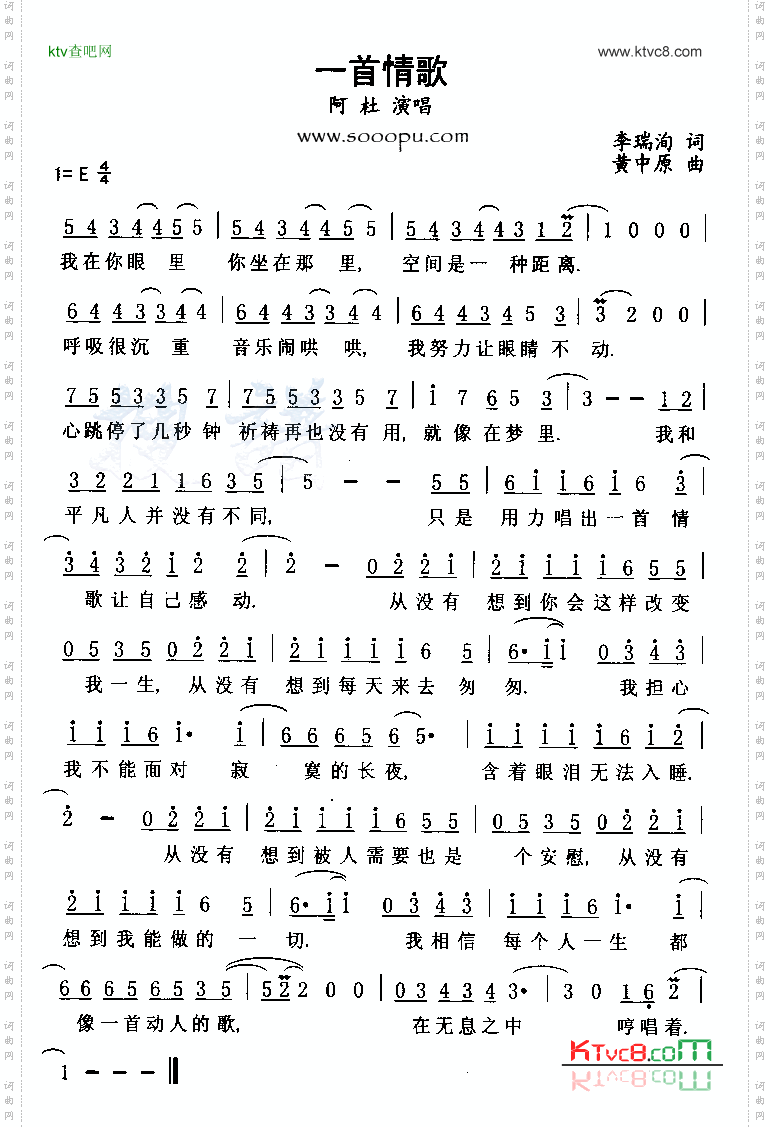 ktv查吧网
www.ktvc8.com
一首情歌
阿 杜 演唱
www.sooopu.com
李瑞洵 词
黄中原 曲
1= E 4/4
5 4 3 4 4 5 5 | 5 4 3 4 4 5 5 | 5 4 3 4 4 3 1 2 | 1 0 0 0 |
我在你眼 里 你坐在那 里, 空间是一 种距离.
6 4 4 3 3 4 4 | 6 4 4 3 3 4 4 | 6 4 4 3 4 5 3 | 3 2 0 0 |
呼吸很沉 重 音乐闹哄 哄, 我努力让眼睛 不 动.
7 5 5 3 3 5 7 | 7 5 5 3 3 5 7 | i 7 6 5 3 | 3 - - 1 2 |
心跳停了几秒 钟 祈祷再也没有 用, 就 像 在 梦 里. 我和
3 2 2 1 1 6 3 5 | 5 - - 5 5 | 6 i i 6 i 6 3 |
平凡人并没有不同, 只是 用力唱出一首 情
3 4 3 2 i 2 2 | 2 - 0 2 2 i | 2 i i i i 6 5 5 |
歌让自己感 动. 从没有 想到你会这样改变
0 5 3 5 0 2 2 i | 2 i i i i 6 5 | 6· i i 0 3 4 3 |
我一生, 从没有 想到每天来去 匆 匆. 我担心
i i i 6 i· i | 6 6 6 5 6 5· | i i i i i 6 i 2 |
我不能面对 寂 寞的长夜, 含着眼泪无法入睡.
2 - 0 2 2 i | 2 i i i i 6 5 5 | 0 5 3 5 0 2 2 i |
从没有 想到被人需要也是 个安慰, 从没有
2 i i i i 6 5 | 6· i i 0 3 4 3 | i i i 6 i· i |
想到我能做的 一 切. 我相信 每个人一生 都
6 6 6 5 6 5 3 5 | 5 2 2 0 0 | 0 3 4 3 4 3· | 3 0 0 1 6 2 |
像一首动人的歌, 在无息之中 哼唱着.
KTvc8.com
1 - - -
词曲网